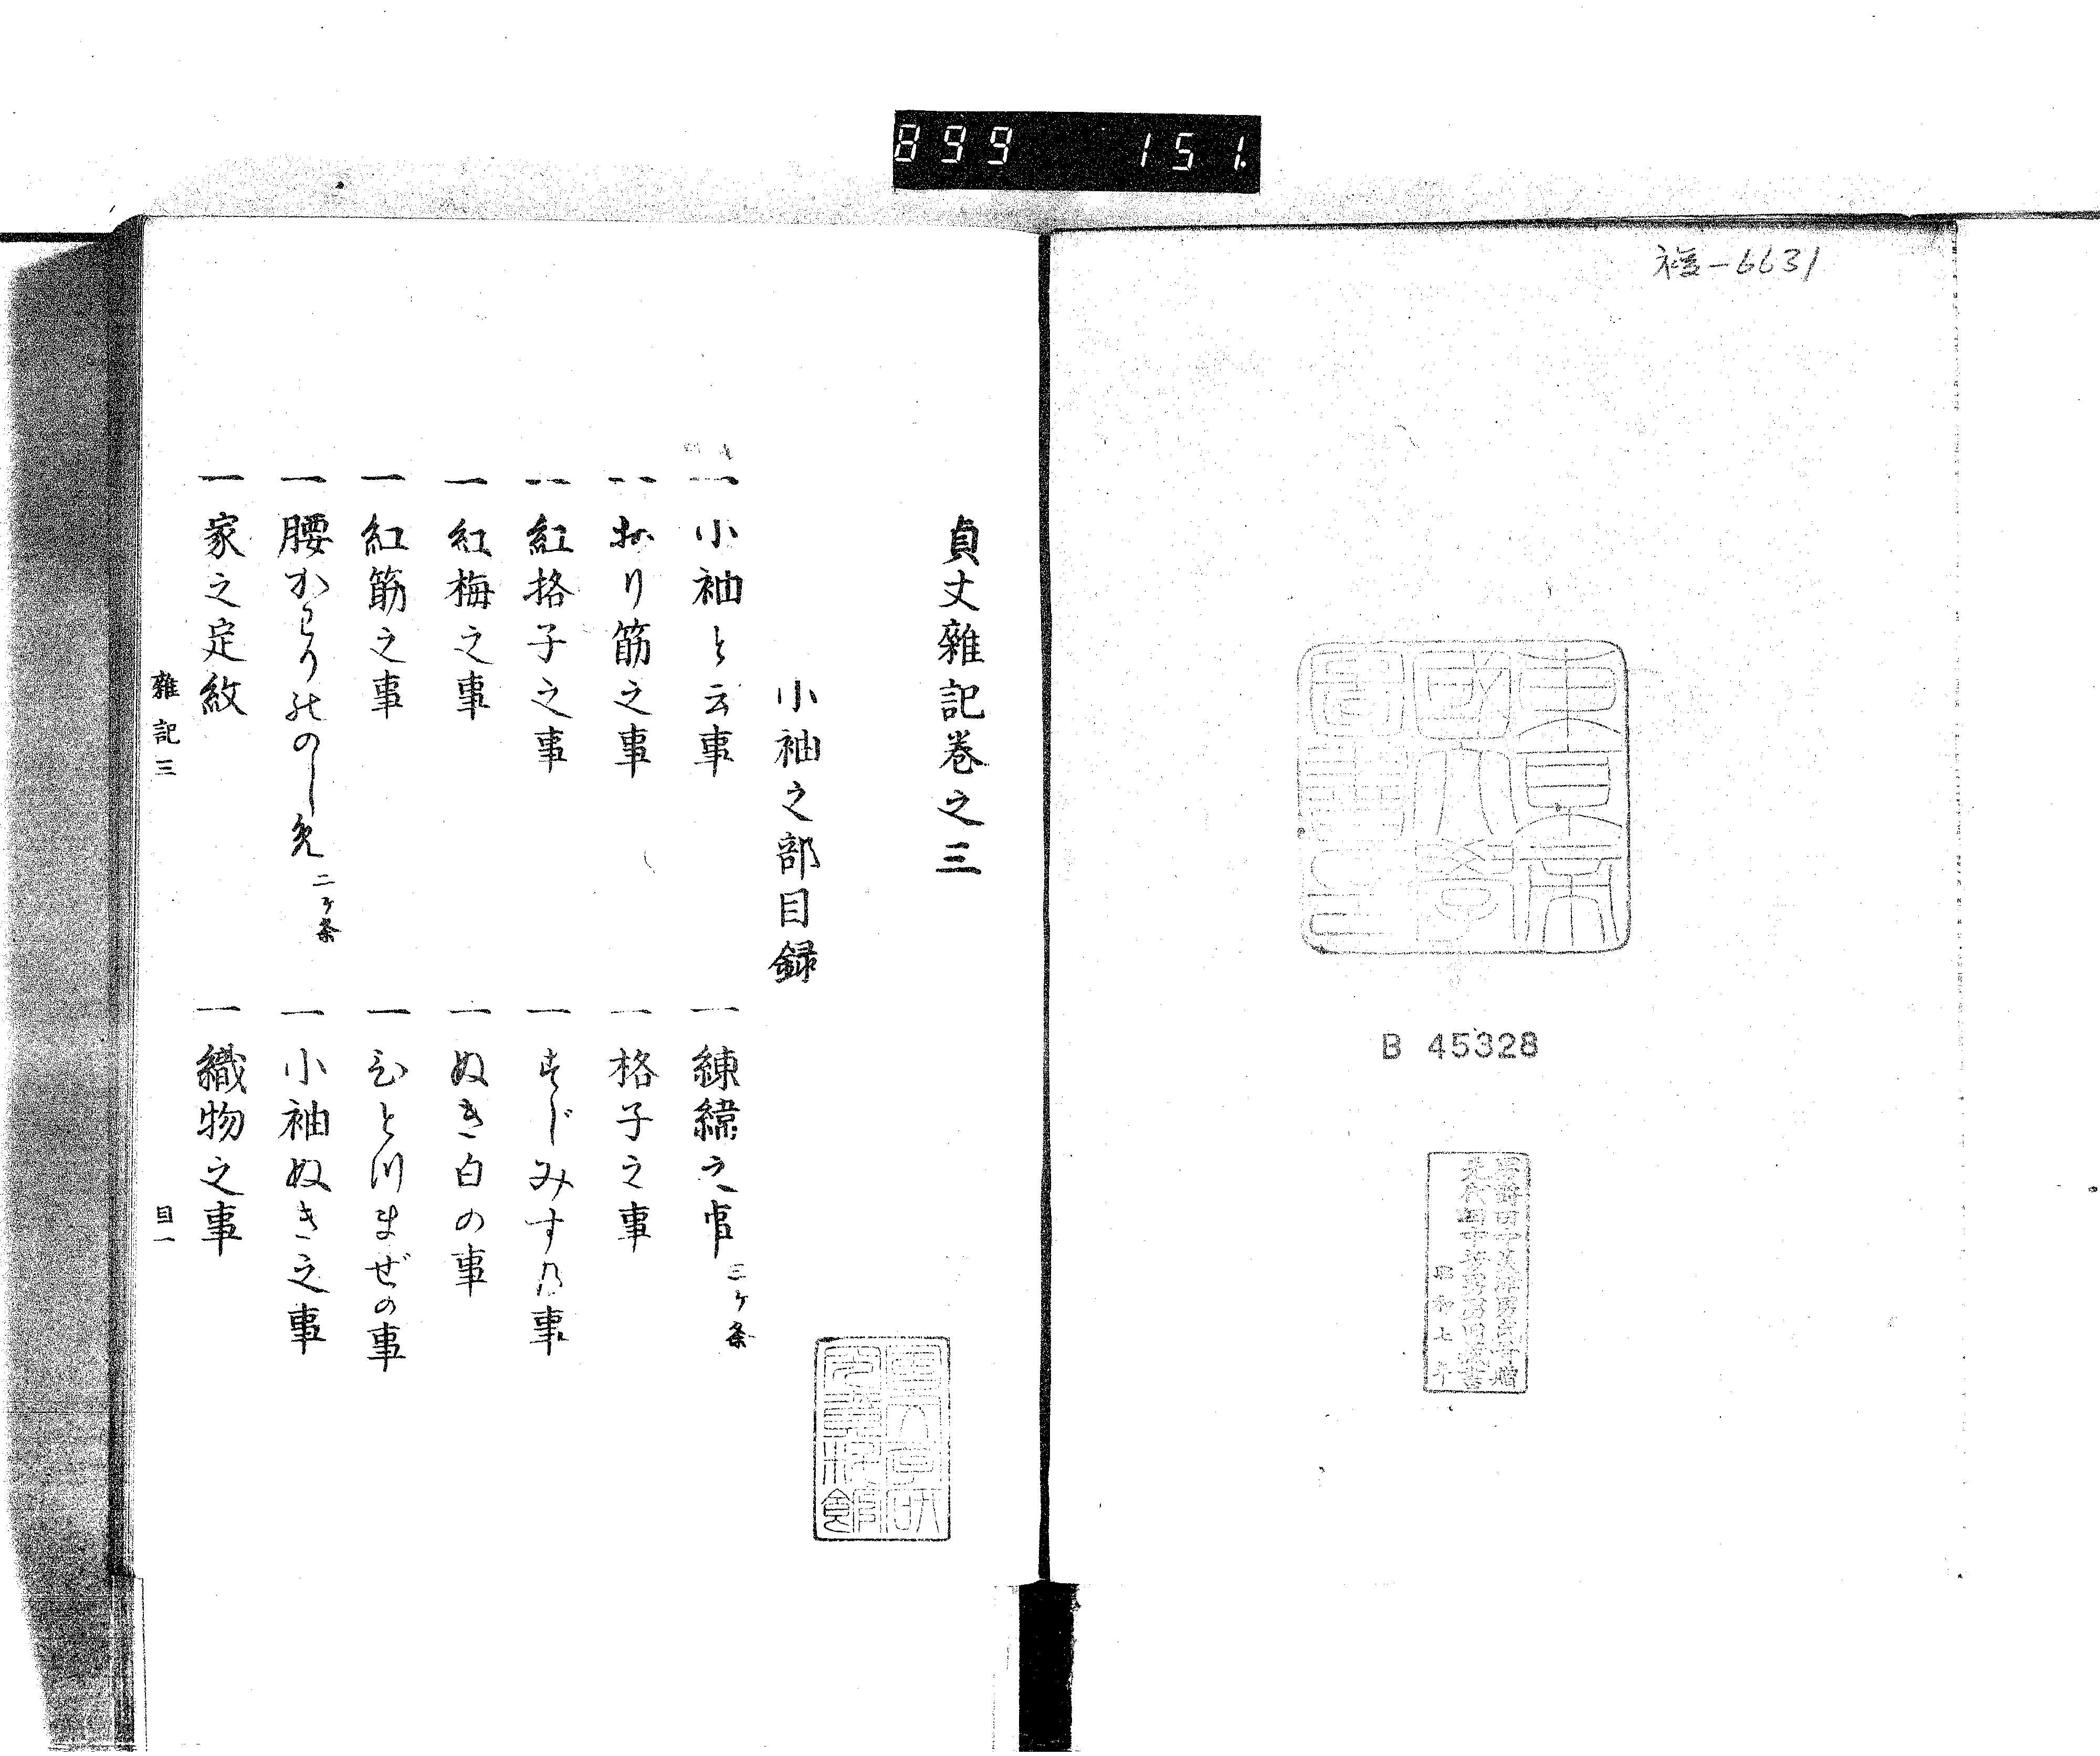 899 151.
6631
東京帝
國大學
圖書印
B 45328
昭和七年
貞丈雜記巻之三
小袖之部目録
一 小袖と云事
一 練緯之事 三ケ条
一 おり筋之事
一 格子之事
一 紅格子之事
一 すじみすの事
一 紅梅之事
一 ぬき白の事
一 紅筋之事
一 ひとつまぜの事
一 腰かわりのしめ 二ケ条
一 小袖ぬき之事
一 家之定紋
一 織物之事
雜記三
目一